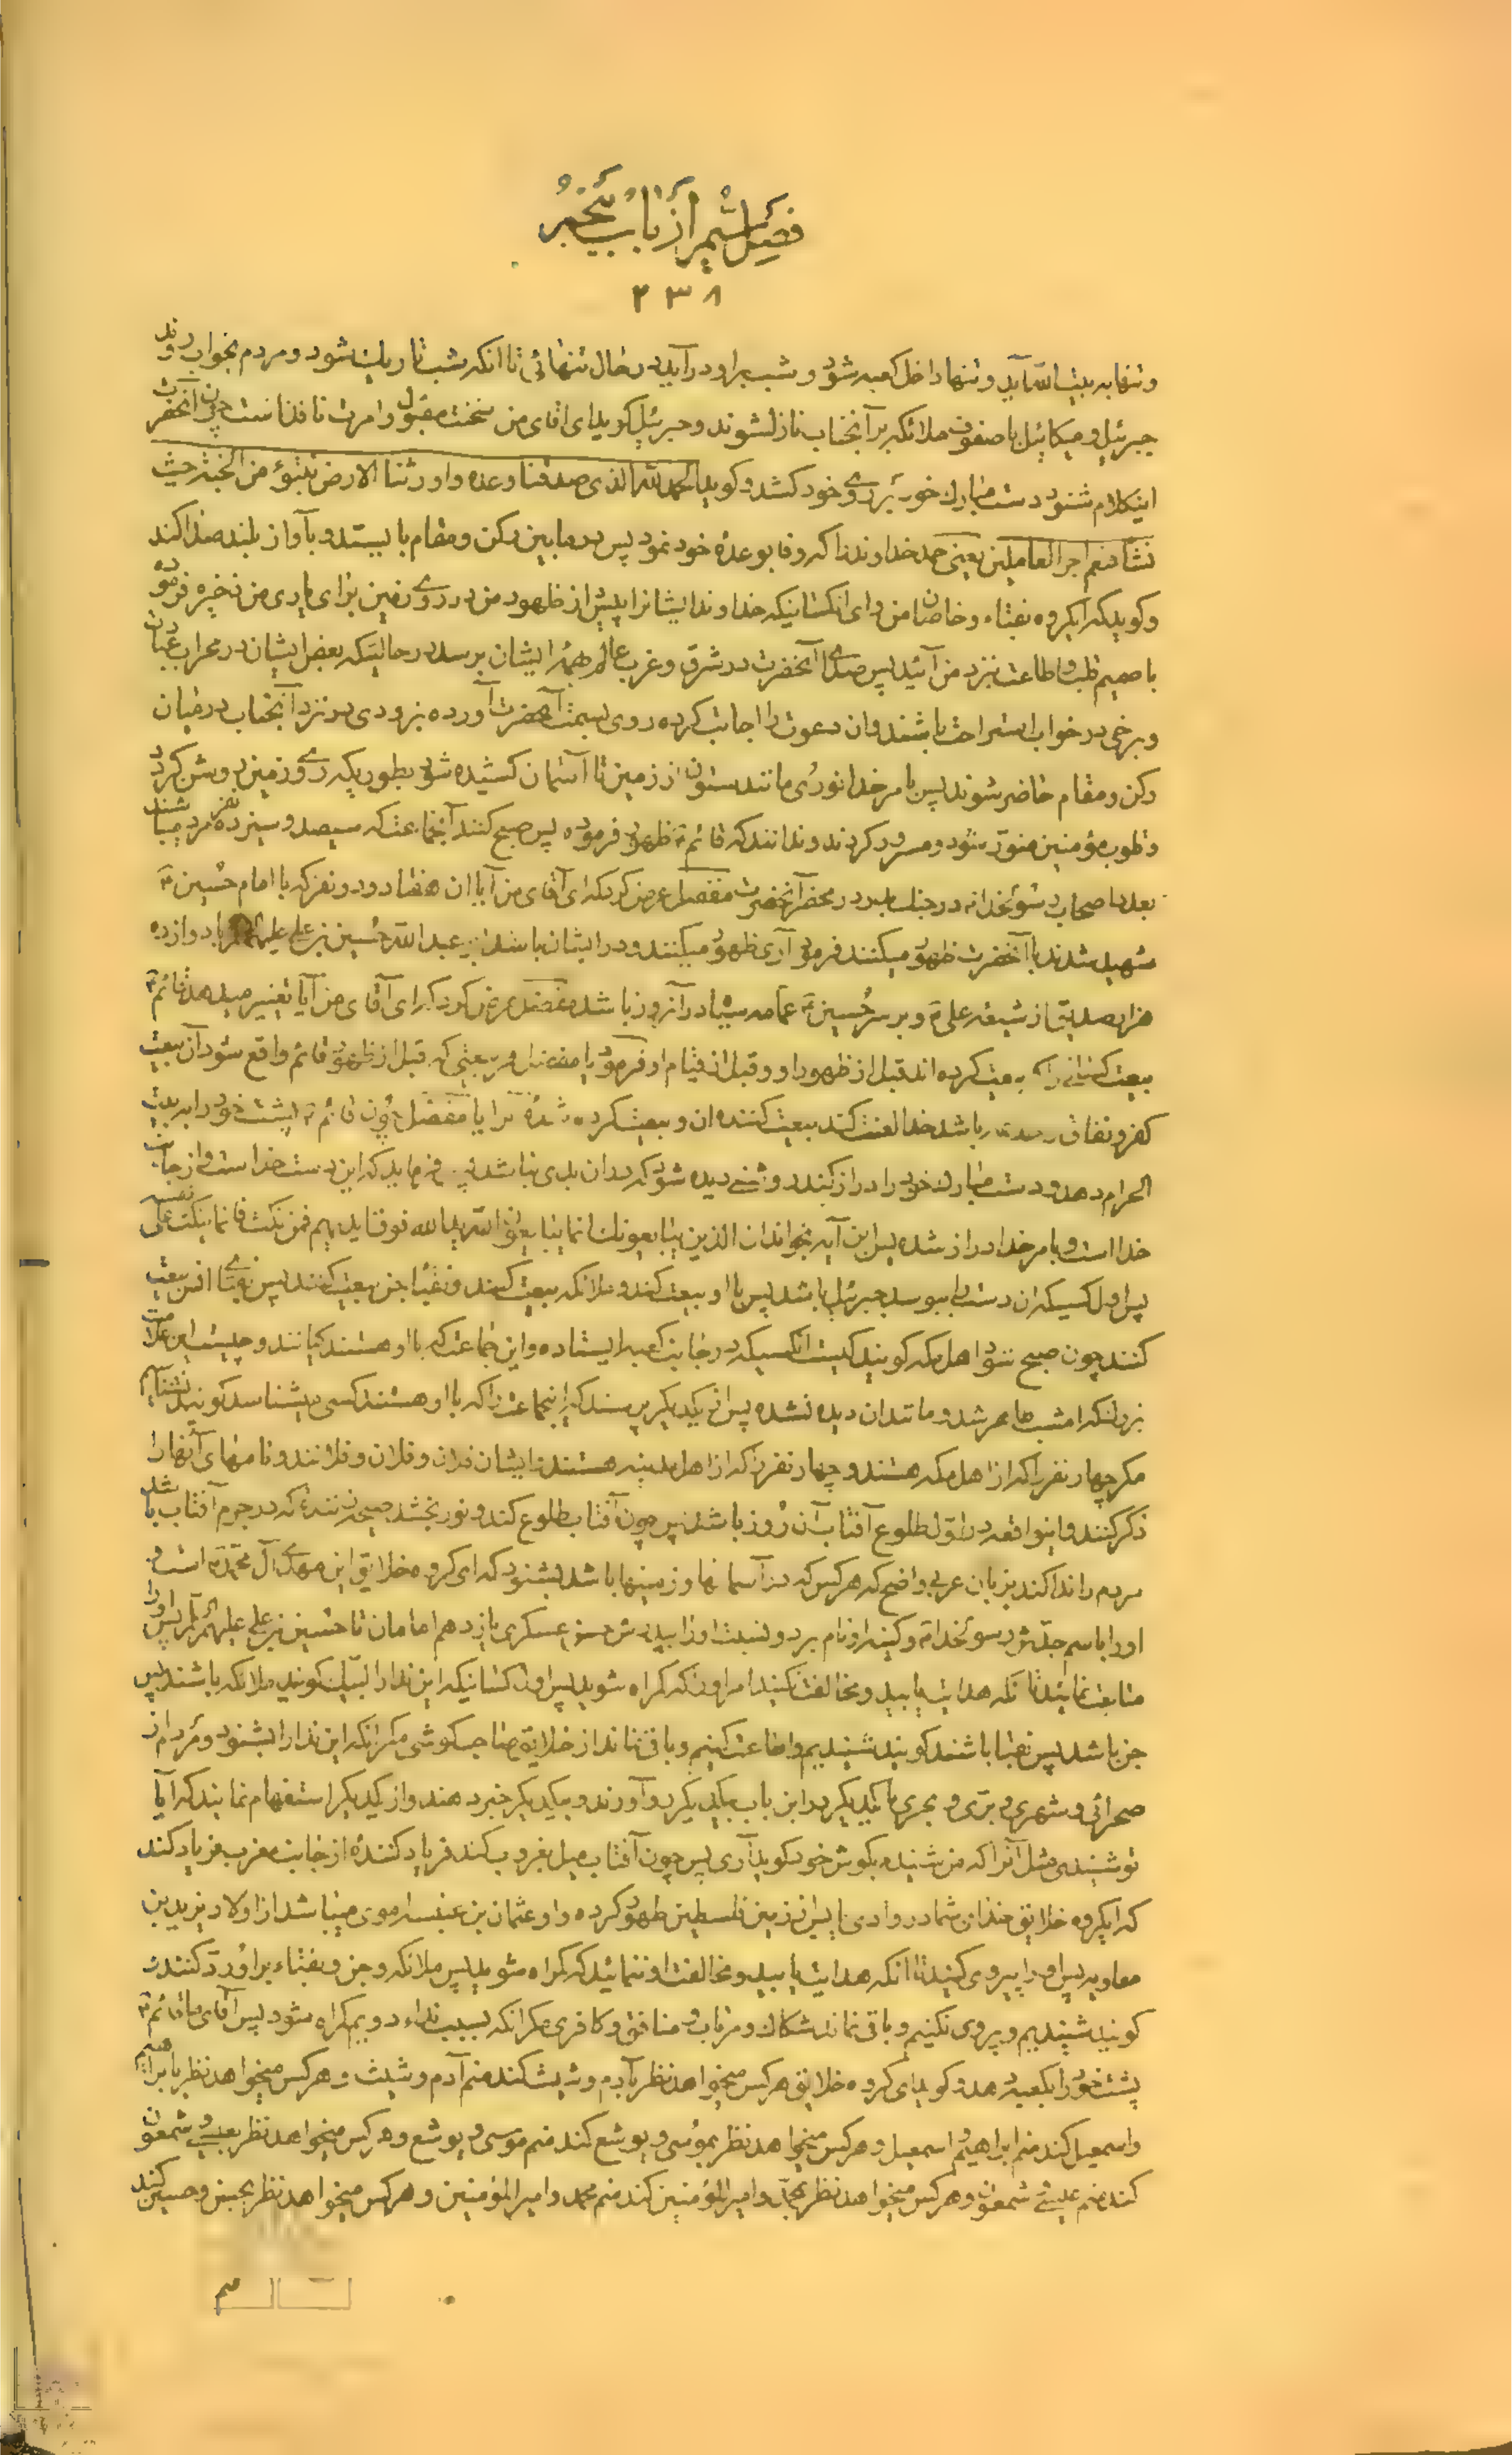 فصل ششم از باب پنجم
۲۳۸
و تنها به بیت الله آید و تنها داخل کعبه شود و شب بر او درآید در حال تنهائی تا آنکه شب تاریک شود و مردم بخواب روند
جبرئیل و میکائیل با صفوف ملائکه بر آنجناب نازل شوند و جبرئیل گوید ای آقای من سخنت مقبول و امرت نافذ است چون آنحضرت
اینکلام شنود دست مبارک خود بر روی خود کشد و گوید الحمد لله الذی صدقنا وعده و اورثنا الارض نتبوّء من الجنة حیث
نشاء فنعم اجر العاملین یعنی حمد خداوند را که وفا بوعده خود نمود پس در مابین رکن و مقام بایستد و بآواز بلند ندا کند
و گوید که ایگروه نقباء و خاصان من و ای آنکسانیکه خداوند ایشانرا پیش از ظهور من در روی زمین برای یاری من ذخیره فرموده
با صمیم قلب و اطاعت نزد من آئید پس صدای آنحضرت در شرق و غرب عالم همه ایشان برسد در حالتیکه بعض ایشان در محراب عبادت
و برخی در خواب استراحت باشند و آن دعوت را اجابت کرده روی بسمت آنحضرت آورده بزودی در نزد آنجناب در میان
رکن و مقام حاضر شوند پس بامر خدا نوری مانند ستون از زمین تا آسمان کشیده شود بطوریکه روی زمین روشن گردد
و قلوب مؤمنین منور شود و مسرور گردند و ندانند که قائم ع ظهور فرموده پس صبح کنند آنجماعت که سیصد و سیزده نفر مرد میباشند
بعدد اصحاب رسول خدا ص در جنگ بدر در محضر آنحضرت مفضل عرض کرد که ای آقای من آیا آن هفتاد و دو نفر که با امام حسین ع
شهید شدند با آنحضرت ظهور میکنند فرمود آری ظهور میکنند و در ایشان باشد ابی عبد الله حسین بن علی علیهما السلام با دوازده
هزار صدیق از شیعه علی ع و بر سر حسین ع عمامه سیاه در آنروز باشد مفضل عرض کرد که ای آقای من آیا تغییر میدهد قائم ع
بیعت کسانی را که بیعت کرده اند قبل از ظهور او و قبل از قیام او فرمود یا مفضل هر بیعتی که قبل از ظهور قائم واقع شود آن بیعت
کفر و نفاق باشد خدا لعنت کند بیعت کننده آن و بیعت کرده شده را یا مفضل چون قائم ع پشت خود را به بیت
الحرام دهد و دست مبارک خود را دراز کند و دیده شود که در آن بدی نباشد پس فرماید که این دست خدا است و از جانب
خدا است و بامر خدا دراز شده پس این آیه بخواند ان الذین یبایعونک انما یبایعون الله ید الله فوق ایدیهم فمن نکث فانما ینکث علی نفسه
پس اول کسیکه آن دست را ببوسد جبرئیل باشد پس با او بیعت کند و ملائکه بیعت کنند و نجبا جن بیعت کنند پس نقبای انس بیعت
کنند چون صبح شود اهل مکه گویند کیست آنکسیکه در جانب کعبه ایستاده و این جماعت که با او هستند کیانند و چیست این علامت
بزرگ که امشب ظاهر شد و مانند آن دیده نشده پس از یکدیگر پرسند که اینجماعت را که با او هستند کسی میشناسد گویند نشناسیم
مگر چهار نفر را که از اهل مکه هستند و چهار نفر را که از اهل مدینه هستند ایشان فلان و فلان و فلانند و نامهای آنها را
ذکر کنند و اینواقعه در اول طلوع آفتاب آن روز باشد پس چون آفتاب طلوع کند و نور بخشد صیحه زننده که در جرم آفتاب باشد
مردم را ندا کند بزبان عربی واضح که هر کس که در آسمانها و زمینها باشد بشنود که ای گروه خلایق این مهدی آل محمد ص است و
او را باسم جدش رسول خدا ص و کنیه او نام برد و نسبت او را بپدرش حسن عسکری یازدهم امامان تا حسین بن علی علیهم السلام پس او را
متابعت نمائید تا آنکه هدایت یابید و مخالفت نکنید امر او را که گمراه شوید پس اول کسانیکه این ندا را لبیک گویند ملائکه باشند پس
جن باشد پس نقبا باشند گویند شنیدیم و اطاعت کنیم و باقی نماند از خلایق صاحب گوشی مگر آنکه این ندا را بشنود و مردم از
صحرائی و شهری و بری و بحری با یکدیگر در این باب بیکدیگر رو آورند و بیکدیگر خبر دهند و از یکدیگر استفهام نمایند که آیا
تو شنیدی مثل آنرا که من شنیدم بگوش خود گوید آری پس چون آفتاب میل بغروب کند فریاد کننده از جانب مغرب فریاد کند
که ایگروه خلایق خدای شما در وادی یابس از زمین فلسطین ظهور کرده و او عثمان بن عنبسه اموی میباشد از اولاد یزید بن
معاویه پس او را پیروی کنید تا آنکه هدایت یابید و مخالفت او ننمائید که گمراه شوید پس ملائکه و جن و نقباء بر او رد کنند
گویند شنیدیم و پیروی نکنیم و باقی نماند شکاک و مرتاب و منافق و کافری مگر آنکه بسبب نداء دویم گمراه شود پس آقای ما قائم ع
پشت خود را بکعبه دهد و گوید ای گروه خلایق هر کس میخواهد نظر بآدم و شیث کند منم آدم و شیث و هر کس میخواهد نظر بابراهیم
و اسمعیل کند منم ابراهیم و اسمعیل و هر کس میخواهد نظر بموسی و یوشع کند منم موسی و یوشع و هر کس میخواهد نظر بعیسی و شمعون
کند منم عیسی و شمعون و هر کس میخواهد نظر بمحمد و امیر المؤمنین کند منم محمد و امیر المؤمنین و هر کس میخواهد نظر بحسن و حسین کند